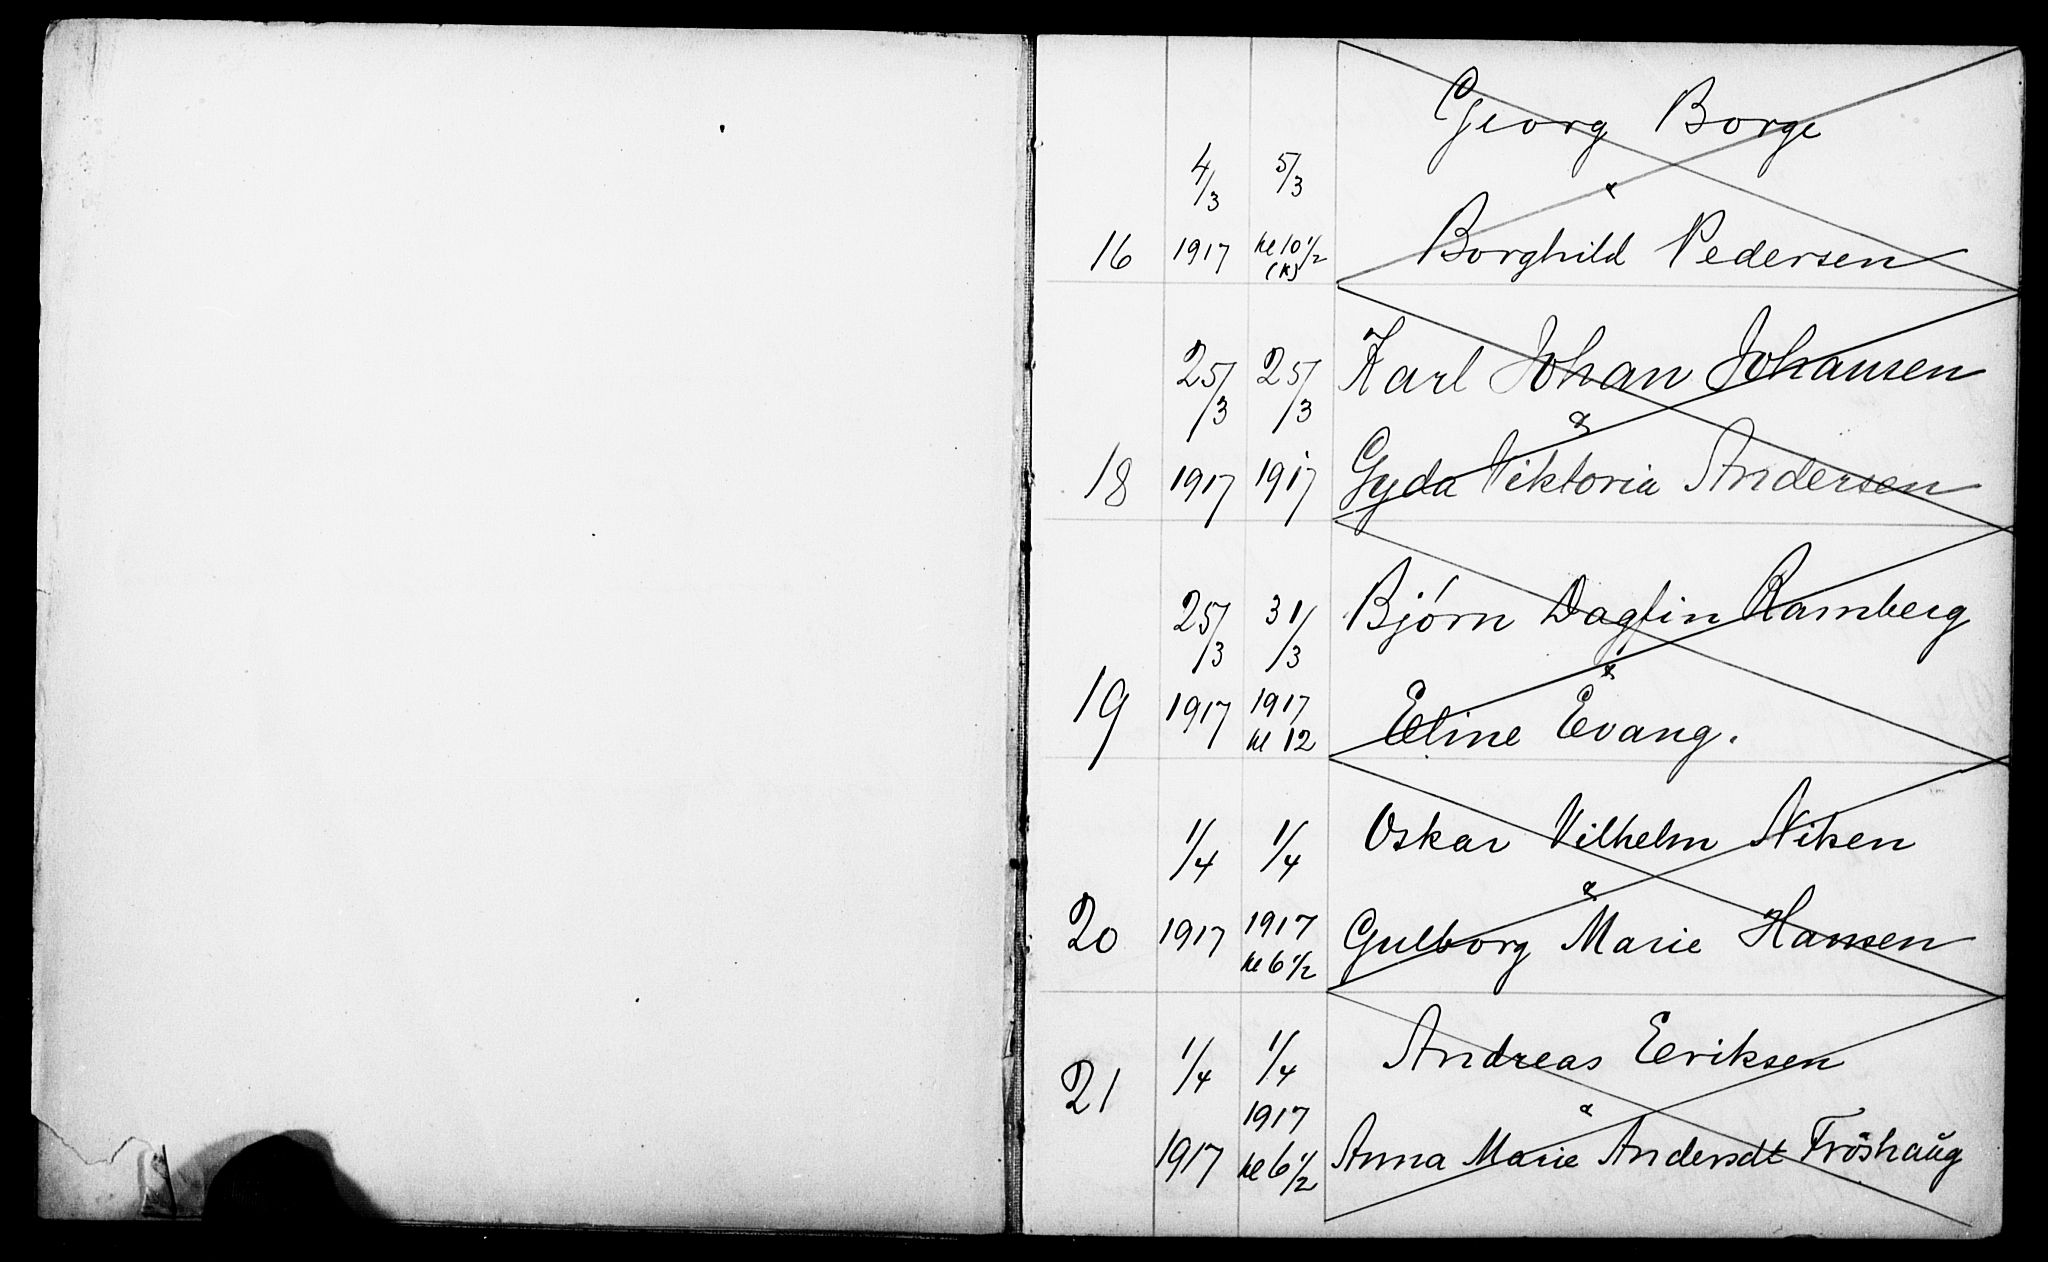 Georg Borge
4/3 5/3
&
16 1917 kl 10 1/2 Borghild Pedersen
(K)
25/3 25/3 Karl Johan Johansen
&
18 1917 1917 Gyda Viktoria Andersen
25/3 31/3 Bjørn Dagfin Ramberg
&
19 1917 1917 Eline Evang.
kl 12
1/4 1/4 Oskar Vilhelm Nilsen
&
20 1917 1917 Gulborg Marie Hansen
kl 6 1/2
1/4 1/4 Andreas Eriksen
21 1917 &
1917 kl 6 1/2 Anna Marie Andersdt Fröshaŭg